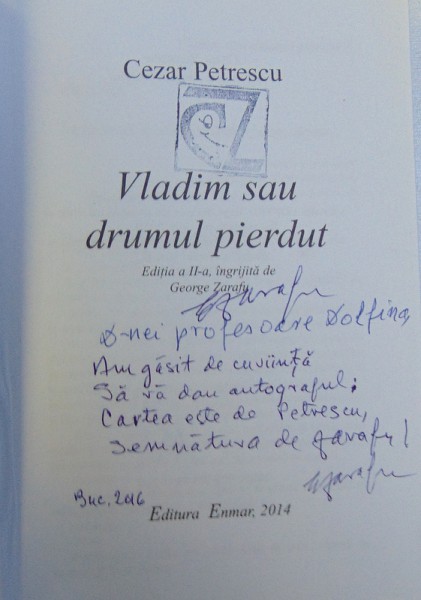 Cezar Petrescu
Vladim sau
drumul pierdut
Ediția a II-a, îngrijită de
George Zarafu
GZarafu
D-nei profesoare Dolfina,
Am găsit de cuviință
Să vă dau autograful;
Cartea este de Petrescu,
Semnătura de Zarafu!
GZarafu
Buc, 2016
Editura Enmar, 2014